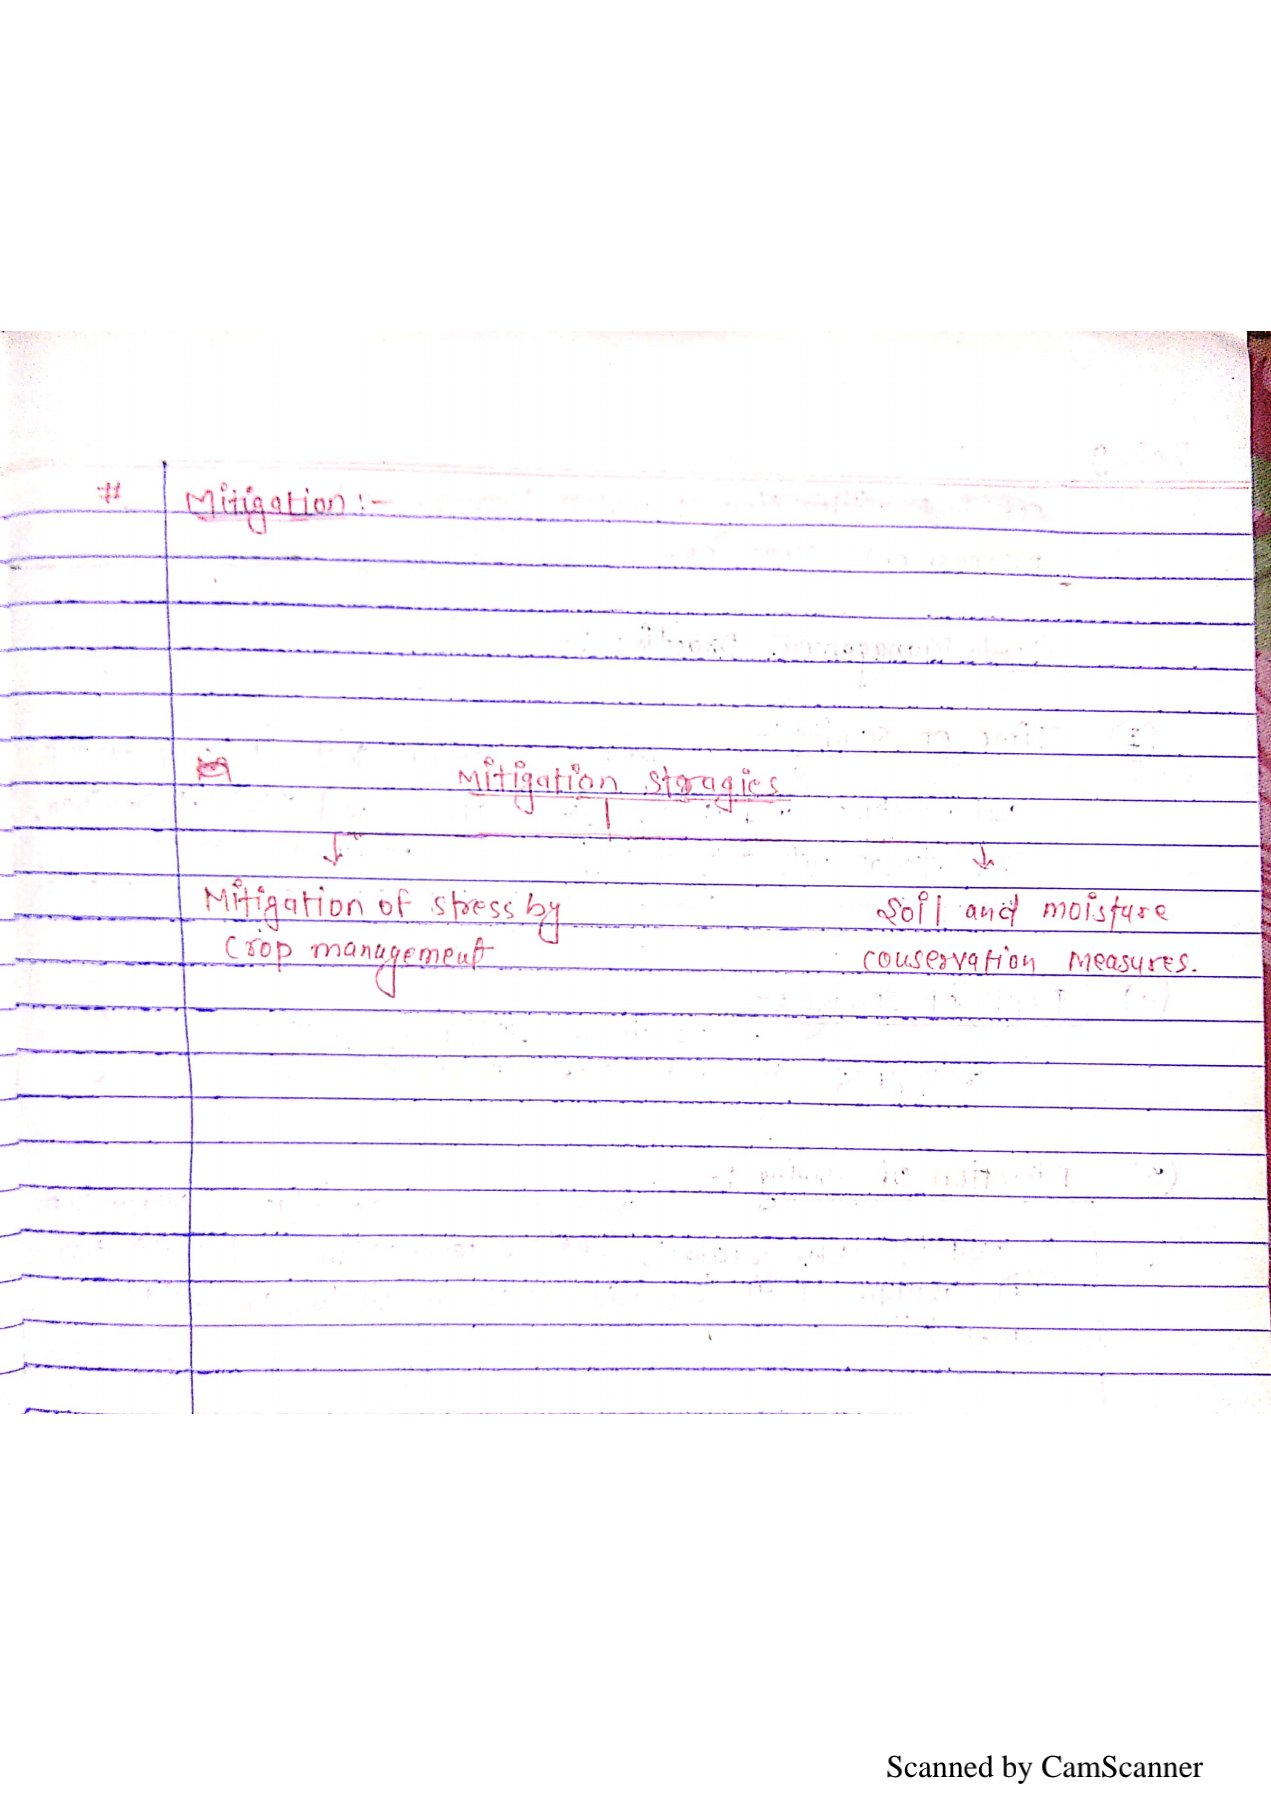 # Mitigation :-
Mitigation Storagies
Mitigation of stress by
Crop management
Soil and moisture
conservation measures.
Scanned by CamScanner